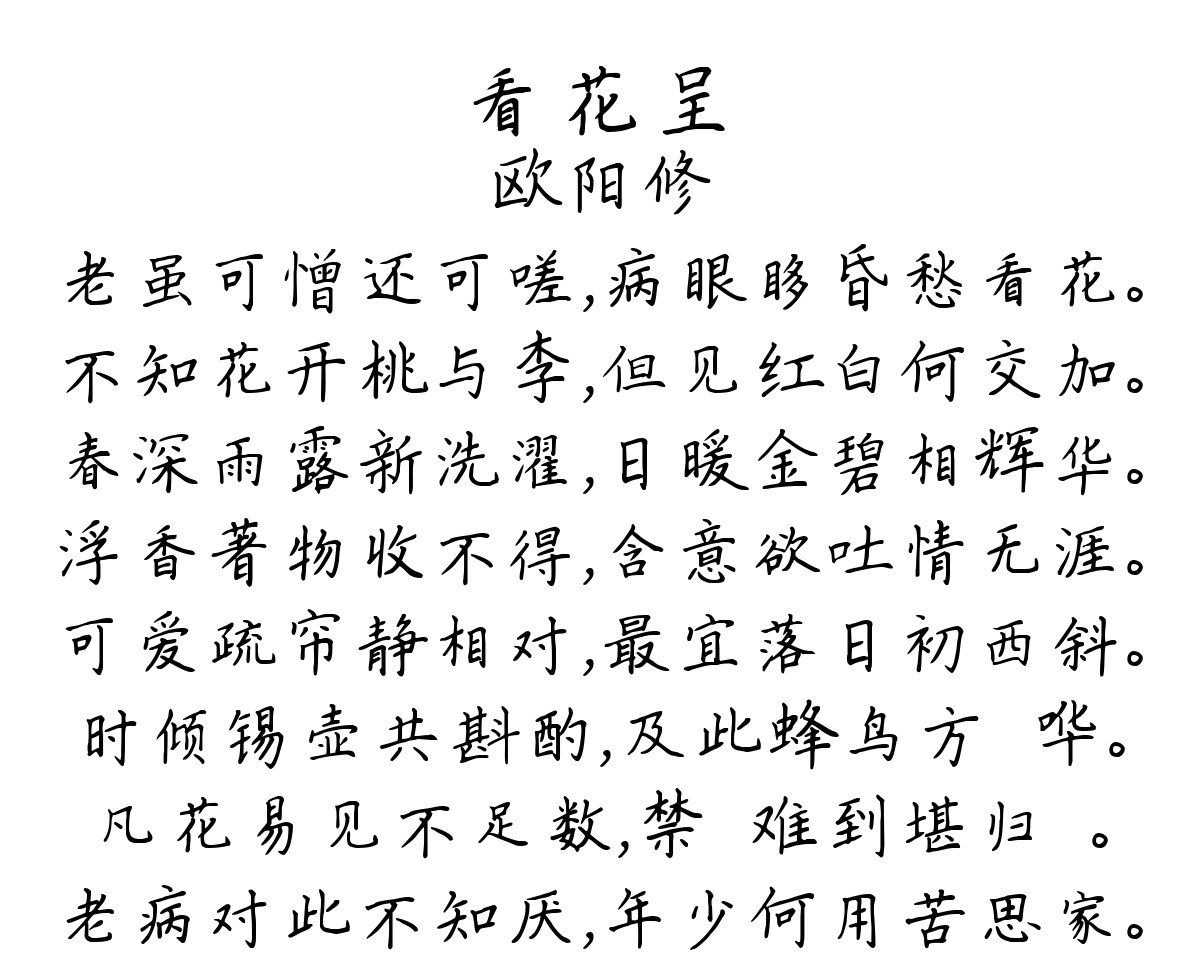 看花呈
欧阳修
老虽可憎还可嗟,病眼眵昏愁看花。
不知花开桃与李,但见红白何交加。
春深雨露新洗濯,日暖金碧相辉华。
浮香著物收不得,含意欲吐情无涯。
可爱疏帘静相对,最宜落日初西斜。
时倾锡壶共斟酌,及此蜂鸟方 哗。
凡花易见不足数,禁 难到堪归 。
老病对此不知厌,年少何用苦思家。